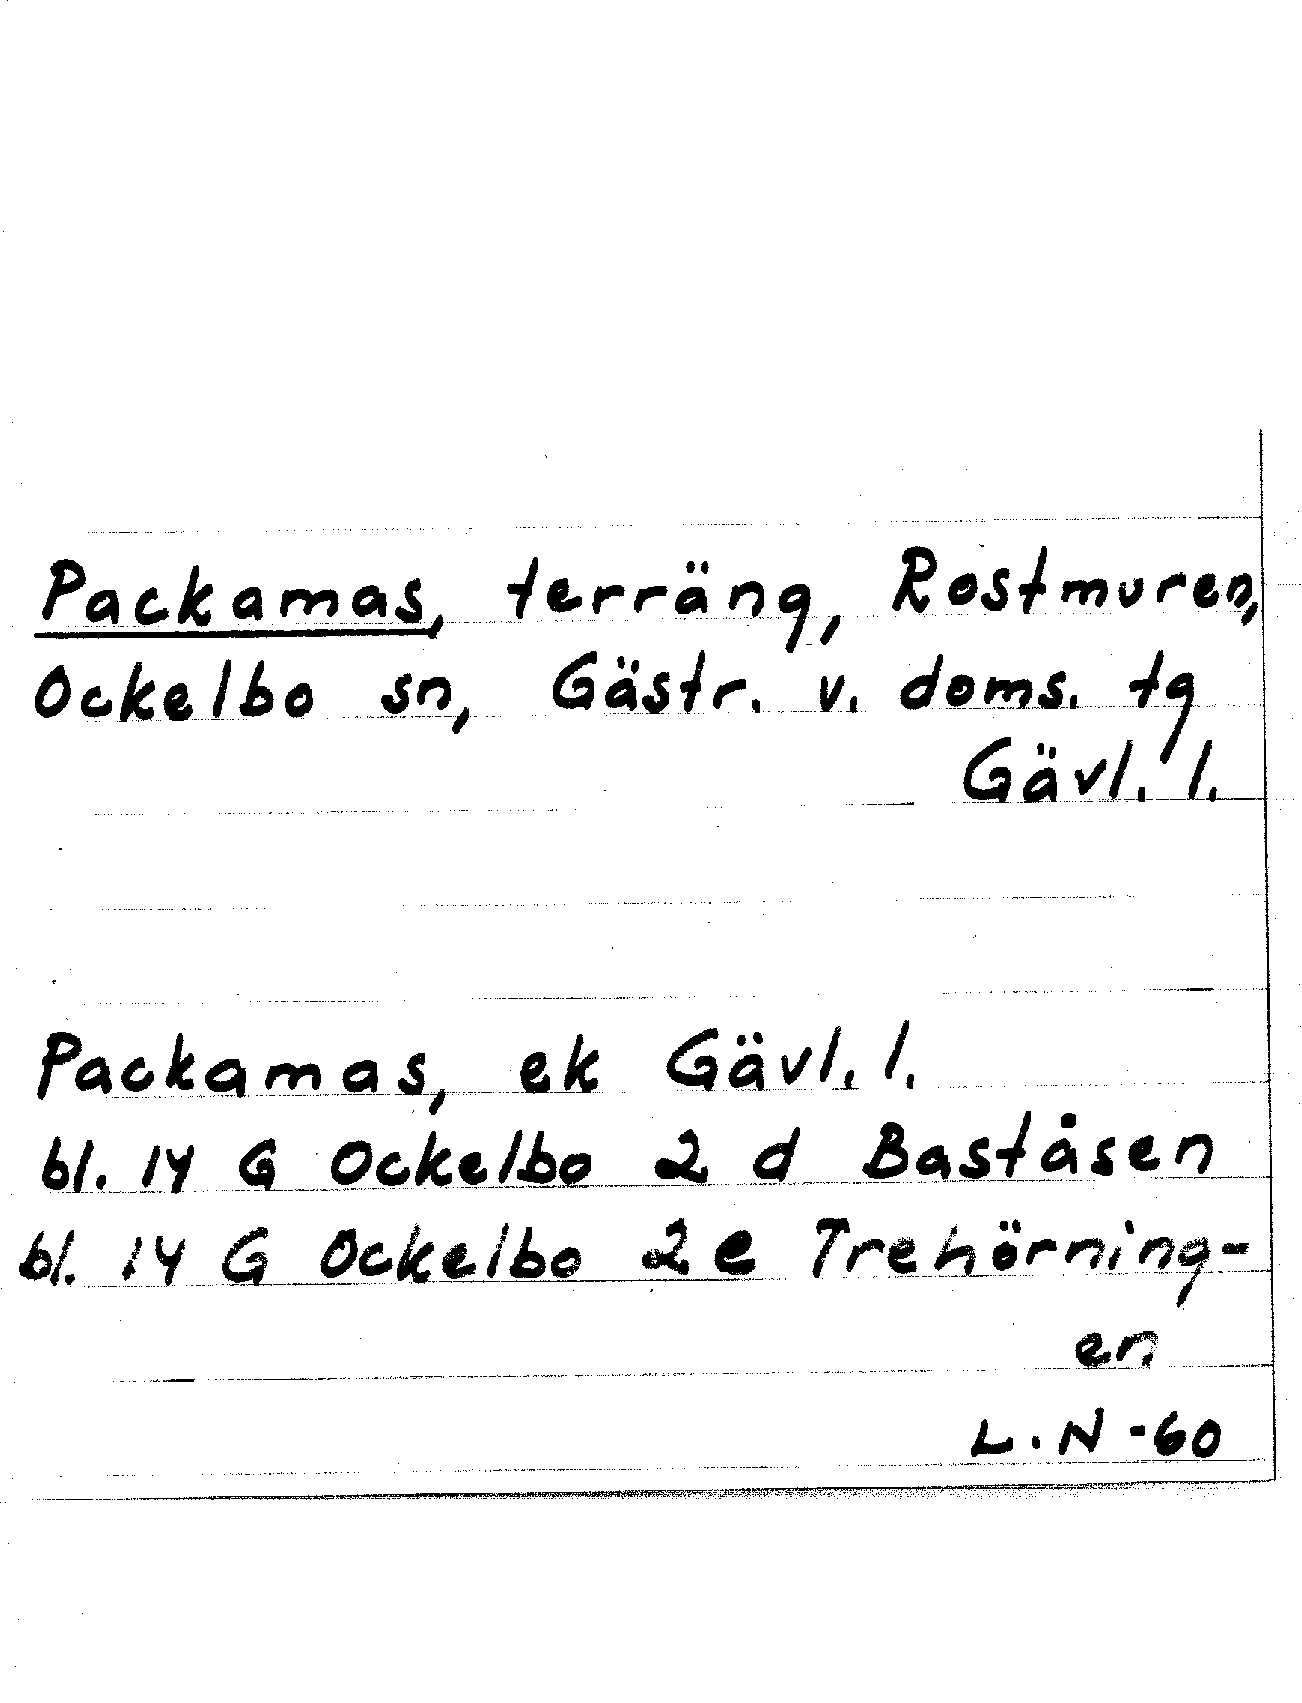 Packamas, terräng, Rostmuren,
Ockelbo sn, Gästr. v. doms. tg
Gävl. l.
Packamas, ek Gävl. l.
bl. 14 G Ockelbo 2 d Baståsen
bl. 14 G Ockelbo 2e Trehörning-
en
L.N -60